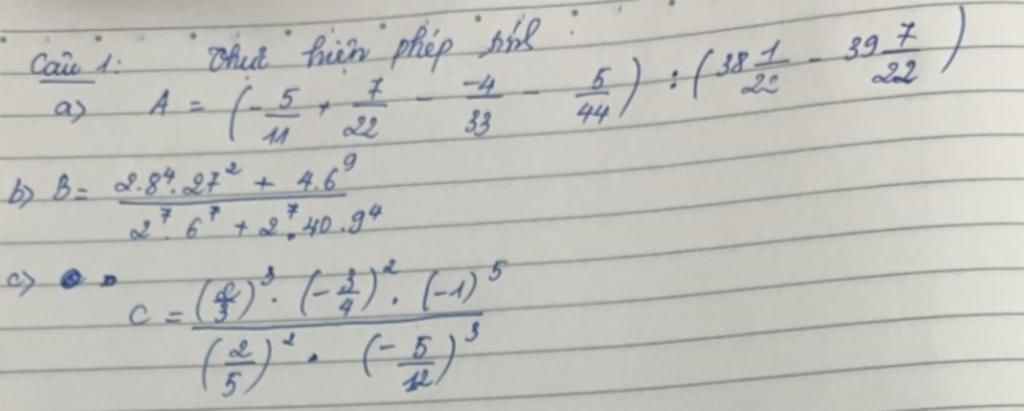 Câu 1: Thực hiện phép tính
a) A = (-5/11 + 7/22 - -4/33 - 5/44) : (38 1/22 - 39 7/22)
b) B = (2.8⁴.27² + 4.6⁹)/(2⁷.6⁷ + 2⁷.40.9⁴)
c) C = ((2/3)³ . (-3/4)² . (-1)⁵)/((2/5)² . (-5/12)³)